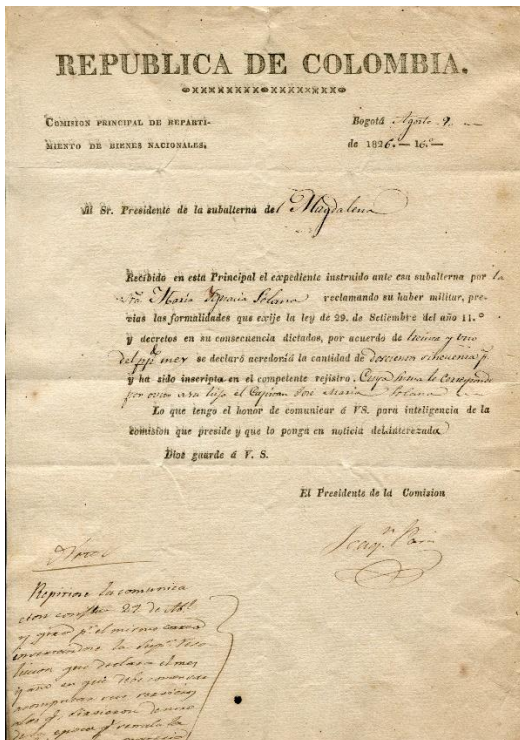 REPUBLICA DE COLOMBIA.
COMISION PRINCIPAL DE REPARTI-
MIENTO DE BIENES NACIONALES.
Bogotá Agosto 9
de 1826.— 16.º—
Al Sr. Presidente de la subalterna del Magdalena
Recibido en esta Principal el expediente instruido ante esa subalterna por la
Sra. Maria Solano reclamando su haber militar, pre-
vias las formalidades que exije la ley de 29. de Setiembre del año 11.º
y decretos en su consecuencia dictados, por acuerdo de treinta y uno
del ppº mes se declaró acredoria la cantidad de doscientos cincuenta p.
y ha sido inscripta en el competente rejistro. Cuya suma le corresponde
por su hijo el Capitan José Maria Solano
Lo que tengo el honor de comunicar á VS. para inteligencia de la
comision que preside y que lo ponga en noticia del interezada
Dios guarde á V. S.
El Presidente de la Comision
Joaqn. Paris
Nota
Repitiose la comunica
cion con fha 27 de
y el mismo
la
que declara el mes
y año en que debe
servicios